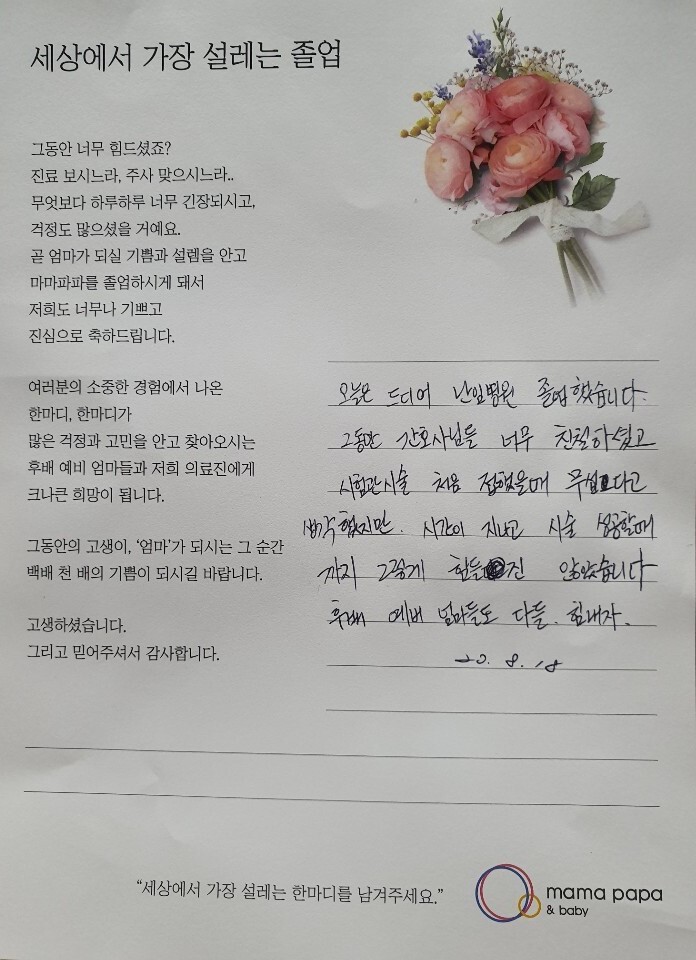 세상에서 가장 설레는 졸업
그동안 너무 힘드셨죠?
진료 보시느라, 주사 맞으시느라..
무엇보다 하루하루 너무 긴장되시고,
걱정도 많으셨을 거예요.
곧 엄마가 되실 기쁨과 설렘을 안고
마마파파를 졸업하시게 돼서
저희도 너무나 기쁘고
진심으로 축하드립니다.
여러분의 소중한 경험에서 나온
한마디, 한마디가
많은 걱정과 고민을 안고 찾아오시는
후배 예비 엄마들과 저희 의료진에게
크나큰 희망이 됩니다.
그동안의 고생이, '엄마'가 되시는 그 순간
백배 천 배의 기쁨이 되시길 바랍니다.
고생하셨습니다.
그리고 믿어주셔서 감사합니다.
오늘은 드디어 난임병원 졸업했습니다.
그동안 간호사님들 너무 친절하셨고
시험관시술 처음 접했을때 무섭다고
생각했지만. 시간이 지나고 시술 성공할때
까지 그렇게 힘들진 않았습니다
후배 예비 엄마들도 다들. 힘내자.
20. 8. 18
"세상에서 가장 설레는 한마디를 남겨주세요."
mama papa
& baby